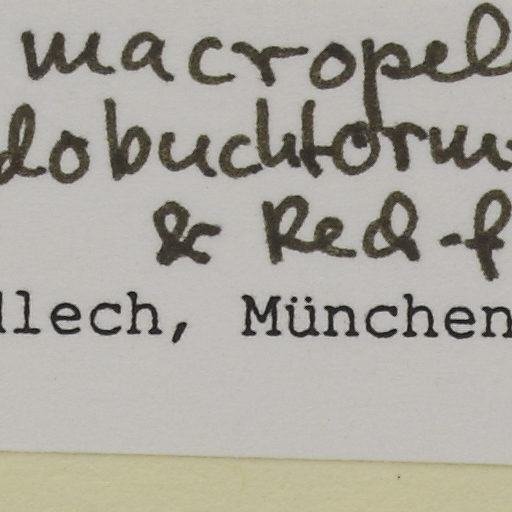 macropel
dobuchtorm
& Red-f
llech, München